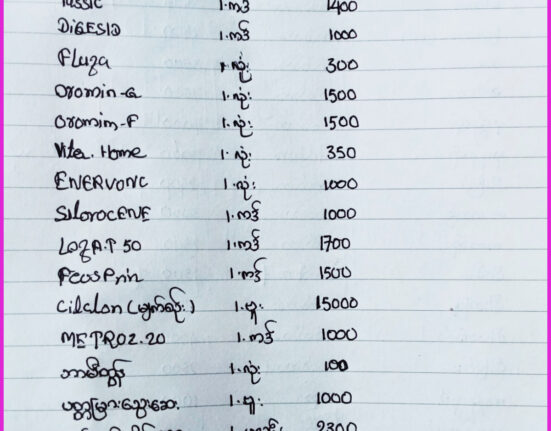 1.ကဒ် 1400
DiGESID 1.ကဒ် 1000
Fluza 1.လုံး 300
Oromin-G 1.လုံး 1500
Oromin-F 1.လုံး 1500
Vita. Home 1.လုံး 350
ENERVONC 1.လုံး 1000
SiloroCENE 1.ကဒ် 1000
LozA.T 50 1.ကဒ် 1700
1.ကဒ် 1500
Cilclon (မျက်စဉ်း) 1.ဗူး 15000
METROZ.20 1.ကဒ် 1000
ဘာမီတွန် 1.လုံး 100
ပတ္တမြားသွေးဆေး 1.ဗူး 1000
2300